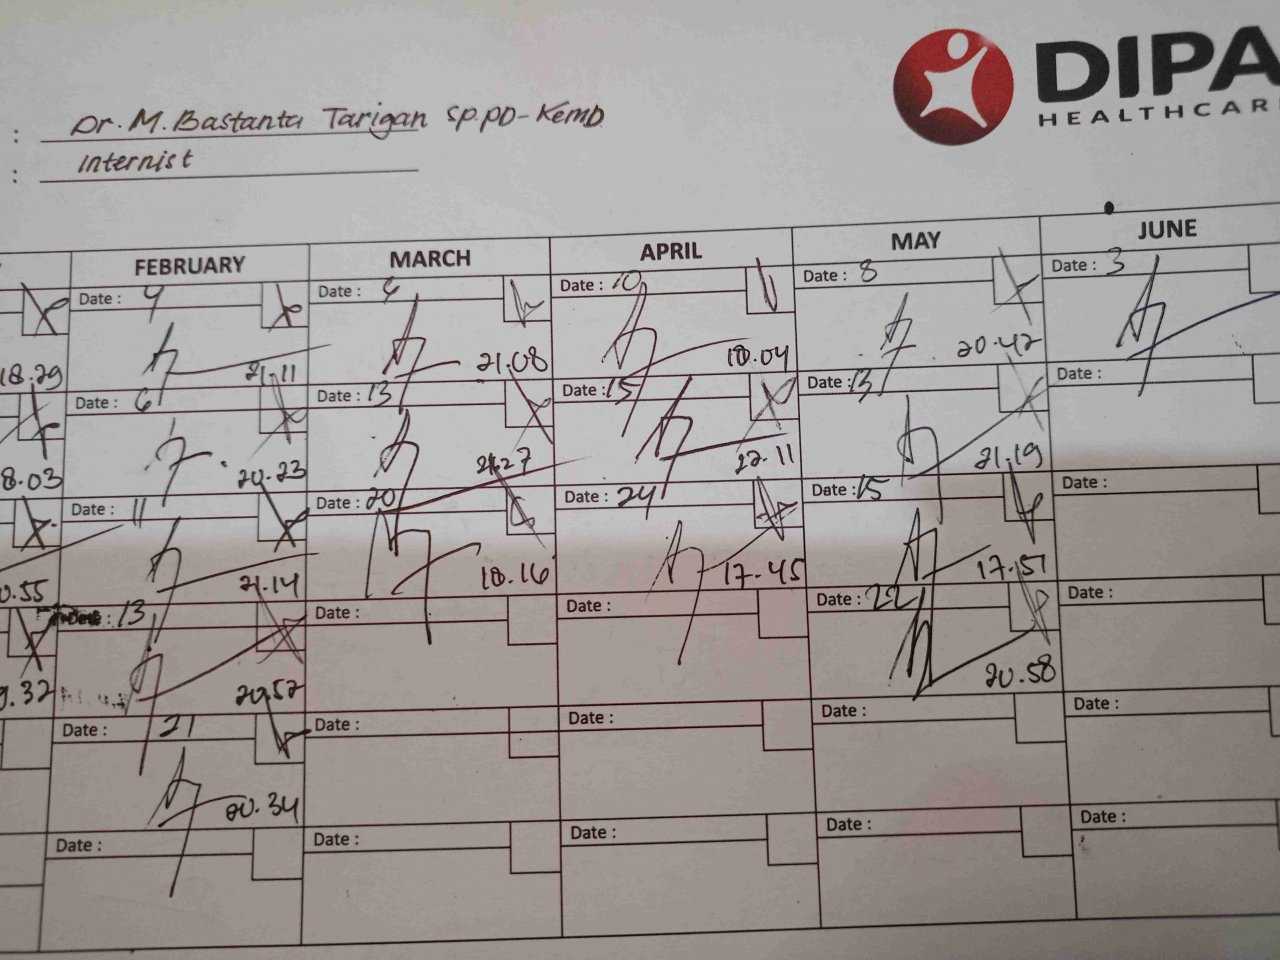 DIPA
HEALTHCAR
: Dr. M. Bastanta Tarigan SP.PD-KEMD
: Internist
FEBRUARY MARCH APRIL MAY JUNE
Date : 4 Date : Date : 10 Date : 8 Date : 3
18.29 21.11 21.08 18.04 20.42
Date : 6 Date : 13 Date : 15 Date : 13 Date :
8.03 20.23 22.11 21.19
Date : 11 Date : 20 Date : 24 Date : 15 Date :
0.55 21.14 18.16 17.45 17.51
Date : 13 Date : Date : Date : 22 Date :
9.32 20.52 20.58
Date : 21 Date : Date : Date : Date :
20.34
Date : Date : Date : Date : Date :